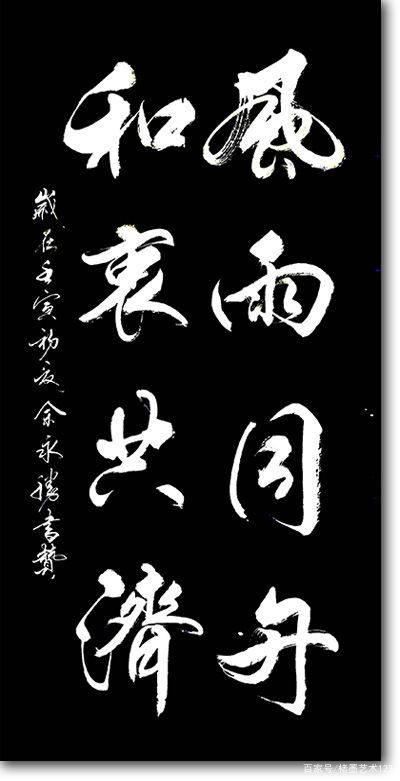 風雨同舟
和衷共濟
歲在壬寅初夏余永勝書贊
百家号/楮墨艺术123